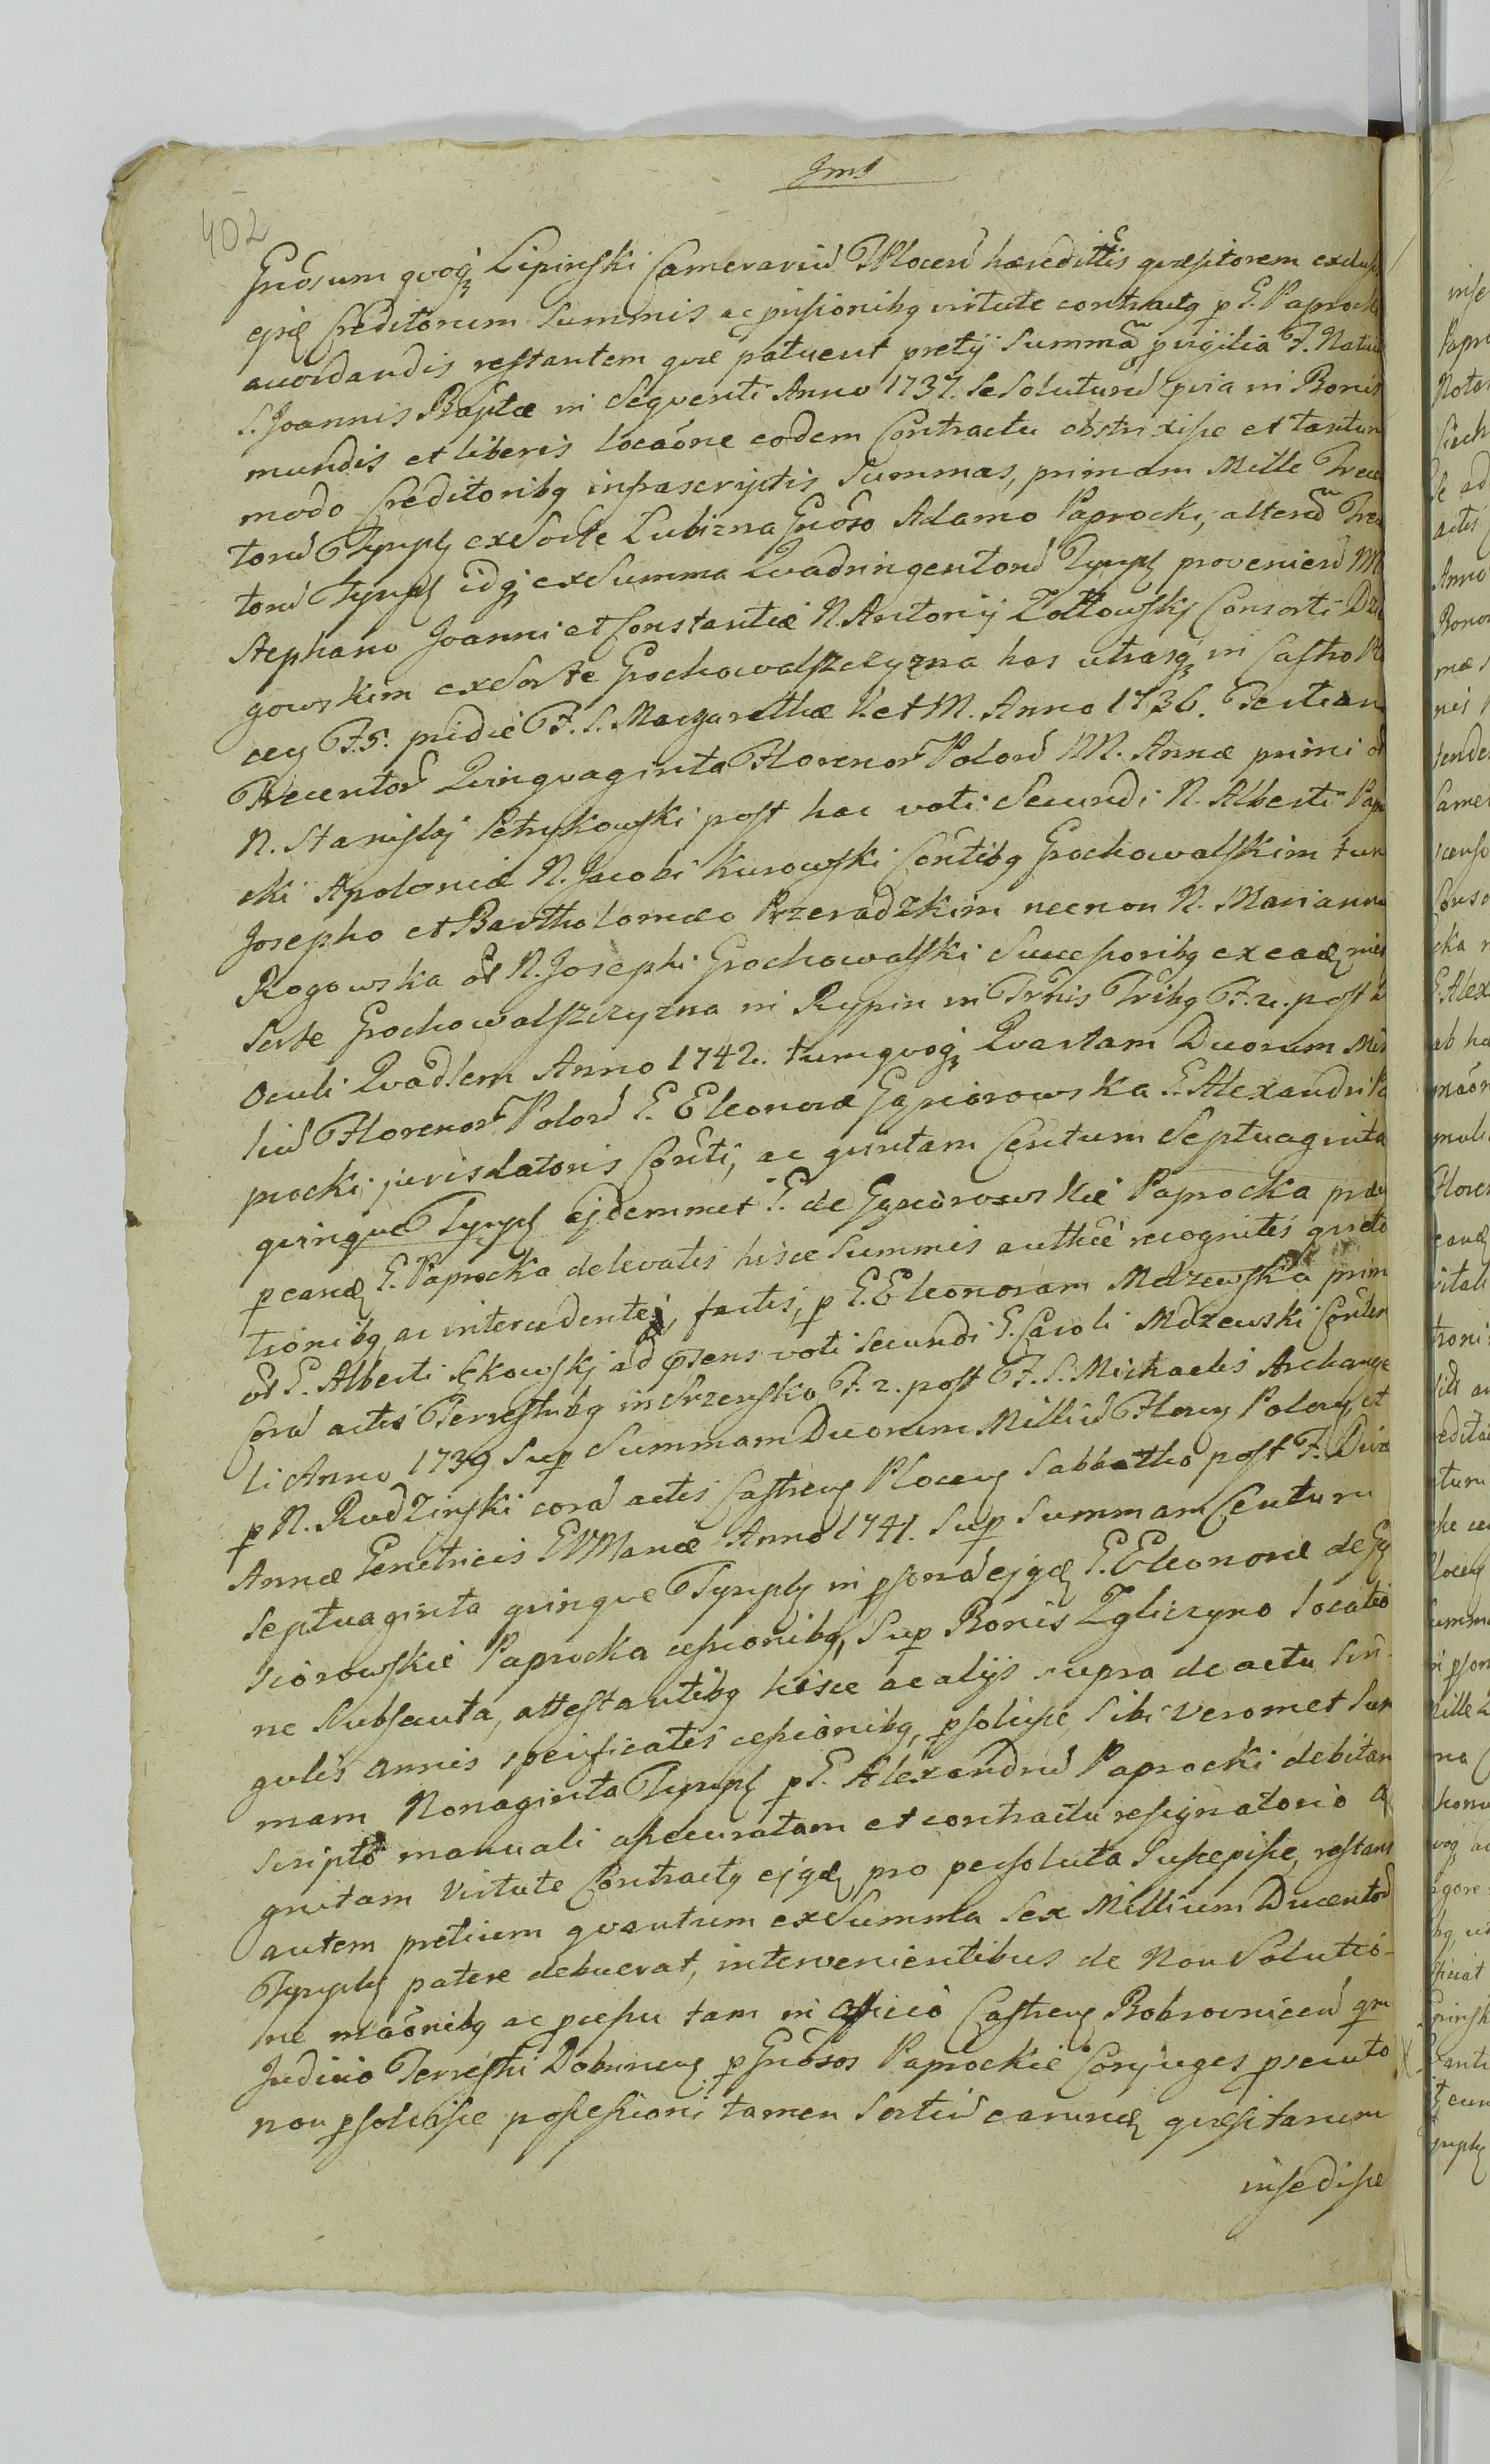 402
Gnosum qvoq Lipinski Camerariu Plocen hæredittis qvæsitorem exclusis
ejsq Creditorum Summis ac pnsionibq virtute contractq p G. Paprocki
acordandis restantem qvæ patuerit pretij Summã pvigilia F. Nativi
S. Joannis Baptæ in Seqventi Anno 1737. se Soluturu in Bonis
mundis et liberis locãone eodem Contractu obstrixisse et tantum
modo Creditoribq infrascriptis Summas, primam Mille Trecen
toru Tymph ex Sorte Lubizna Gnoso Adamo Paprocki, alteru Trecen
toru Tymph idq ex Summa Qvadringentoru Tymph provenien M
Stephano Joanni et Constantiæ N. Antonij Zołtowskj Consorti
gowskim ex Sorte Grochowalszczyzna has utrasq in Castro Plo
cen F. 5. pridie F. S. Margarethæ V. et M. Anno 1736. Tertiam
Trecentor Qvinqvaginta Florenor Polon M. Annæ primi ot
N. Stanislaj Petrykowski post hac voti Secundi N. Alberti Papro
cki Apoloniæ N. Jacobi Kurowski Contibq Grochowalskim tum
Josepho et Bartholomæo Przeradzkim necnon N. Marianna
Rogowska ot N. Josephi Grochowalski Successoribq ex eadq
Sorte Grochowalszczyzna in Rypin in Trnis Tribq F. 2. post
Oculi Qvadlem Anno 1742. tumqvoq Qvartam Duorum Mil
liu Florenor Polon G. Eleonoræ Gąsiorowska G. Alexandri Pa
procki jurisdatoris Conti, ac qvintam Centum Septuaginta
qvinqve Tymph ejdemmet G. de Gąsiorowskie Paprocka
p eandq G. Paprocka delevatis hisce Summis authce recognitis qvieta
tionibq ac intercedente, factis, p G. Eleonoram Mdzewska prim
ot G. Alberti Łękowskj ad psens voti Secundi G. Caroli Mdzewski Conter
Cora actis Terrestribq in Srzensko F. 2. post F. S. Michaelis Archange
li Anno 1739 Sup Summam Duorum Milliu Floren Polon et
p N. Rudzinski cora actis Castren Plocen Sabbatho post F. Divæ
Annæ Genetricis GVMariæ Anno 1741. Sup Summam Centum
Septuaginta qvinqve Tymph in psona ejqd G. Eleonoræ de Gą
siorowskie Paprocka cessionibq, Sup Bonis Zgliczyno locatio
ne Subsecuta, attestantibq hisce ac alijs supra de actu Sin-
gulis annis specificatis cessionibq, psoluisse, Sibi veromet Sum
mam Nonaginta Tymph p G. Alexandru Paprocki debitam
scripto manuali assecuratam et contractu resignatorio a
gnitam virtute Contractq ejqd pro persoluta Suscepisse, restans
autem pretium qvantum ex Summa Sex Millium Ducentor
Tymph patere debuerat, intervenientibus de Non Solutio-
ne mãonibq ac pcessu tam in Officio Castren Bobrovnicen qm
Judicio Terrestri Dobrinen p Gnosos Paprockie Conjuges psecuto
non psoluisse possessioni tamen Sortiu earundq qvæsitarum
insedisse